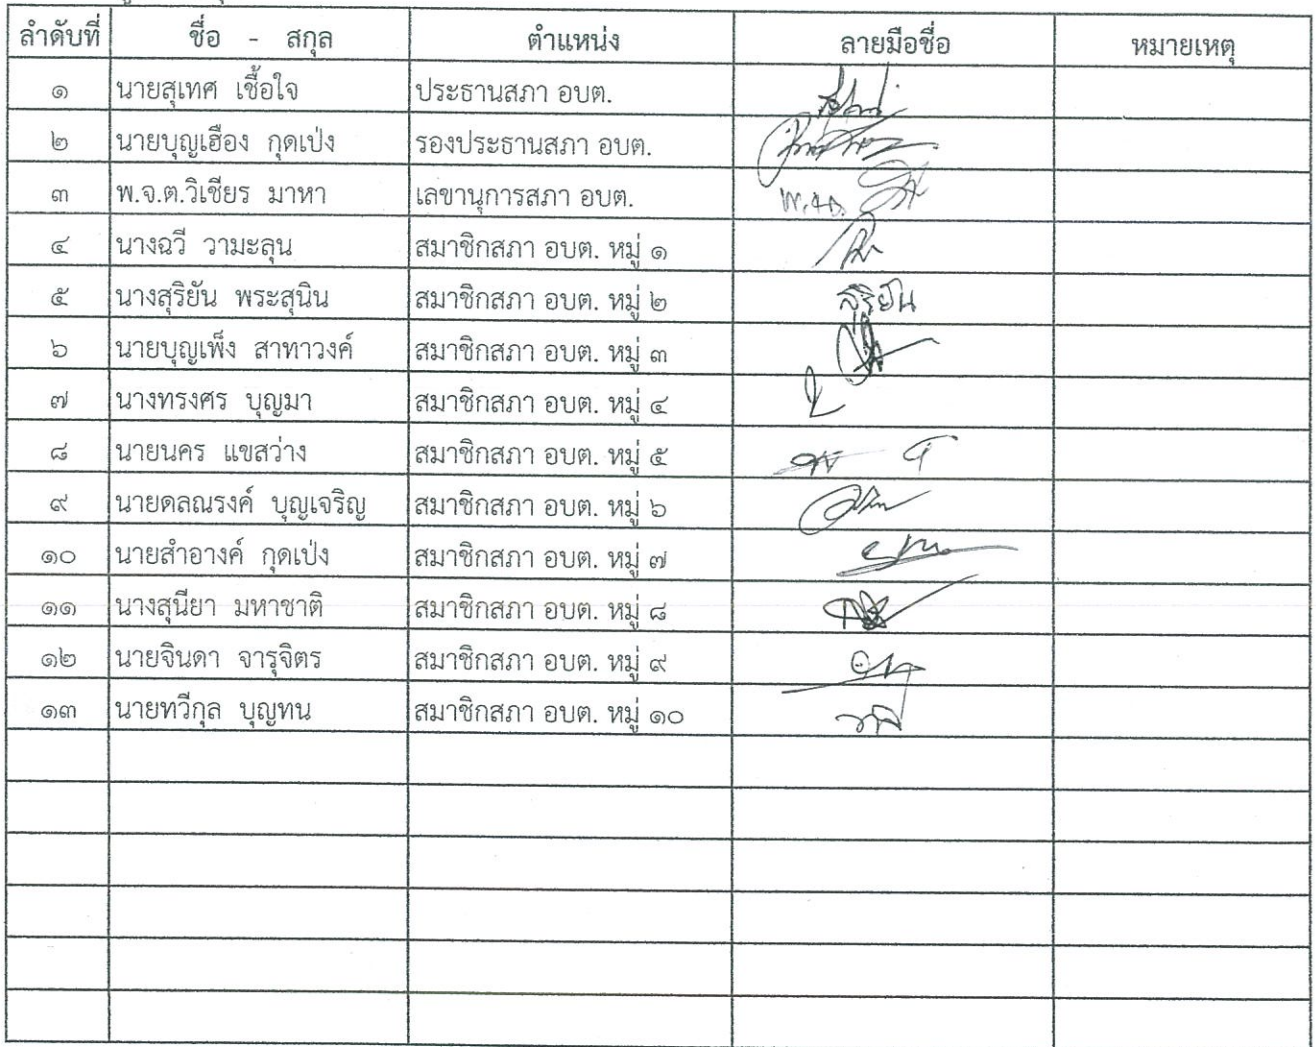 ลำดับที่ ชื่อ - สกุล ตำแหน่ง ลายมือชื่อ หมายเหตุ
๑ นายสุเทศ เชื้อใจ ประธานสภา อบต.
๒ นายบุญเฮือง กุดเป่ง รองประธานสภา อบต.
๓ พ.จ.ต.วิเชียร มาหา เลขานุการสภา อบต. พ.จ.ต.
๔ นางฉวี วามะลุน สมาชิกสภา อบต. หมู่ ๑
๕ นางสุริยัน พระสุนิน สมาชิกสภา อบต. หมู่ ๒ สุริยัน
๖ นายบุญเพ็ง สาทาวงค์ สมาชิกสภา อบต. หมู่ ๓
๗ นางทรงศร บุญมา สมาชิกสภา อบต. หมู่ ๔
๘ นายนคร แขสว่าง สมาชิกสภา อบต. หมู่ ๕
๙ นายดลณรงค์ บุญเจริญ สมาชิกสภา อบต. หมู่ ๖
๑๐ นายสำอางค์ กุดเป่ง สมาชิกสภา อบต. หมู่ ๗
๑๑ นางสุนียา มหาชาติ สมาชิกสภา อบต. หมู่ ๘
๑๒ นายจินดา จารุจิตร สมาชิกสภา อบต. หมู่ ๙
๑๓ นายทวีกุล บุญทน สมาชิกสภา อบต. หมู่ ๑๐